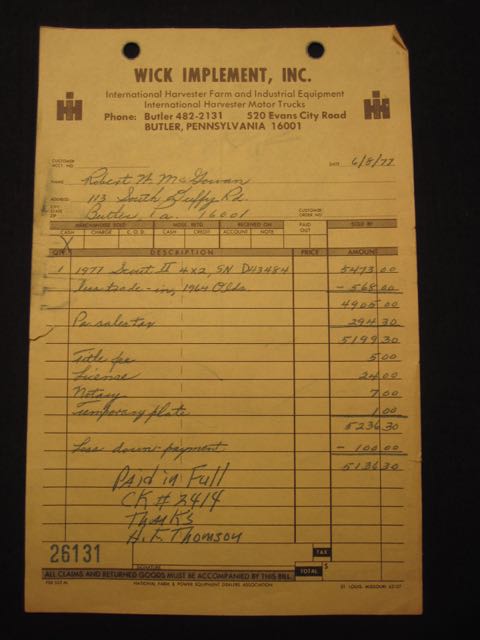 WICK IMPLEMENT, INC.
International Harvester Farm and Industrial Equipment
International Harvester Motor Trucks
Phone: Butler 482-2131 520 Evans City Road
BUTLER, PENNSYLVANIA 16001
CUSTOMER ACCT. NO. DATE 6/8/77
NAME Robert W. McGowan
ADDRESS 113 South Duffy Rd.
CITY STATE ZIP Butler Pa. 16001 CUSTOMER ORDER NO.
MERCHANDISE SOLD MDSE. RETD. RECEIVED ON PAID OUT SOLD BY
CASH CHARGE C.O.D. CASH CREDIT ACCOUNT NOTE
X
QTY. DESCRIPTION PRICE AMOUNT
1 1977 Scout II 4x2, SN D43484 5473 00
Less trade-in, 1964 Olds - 568 00
4905 00
Pa sales tax 294 30
5199 30
Title fee 5 00
License 24 00
Notary 7 00
Temporary plate 1 00
5236 30
Less down payment - 100 00
5136 30
Paid in Full
CK # 2414
Thanks
H.E. Thomson
26131
TAX
SIGNATURE
ALL CLAIMS AND RETURNED GOODS MUST BE ACCOMPANIED BY THIS BILL. TOTAL $
NATIONAL FARM & POWER EQUIPMENT DEALERS ASSOCIATION ST. LOUIS, MISSOURI